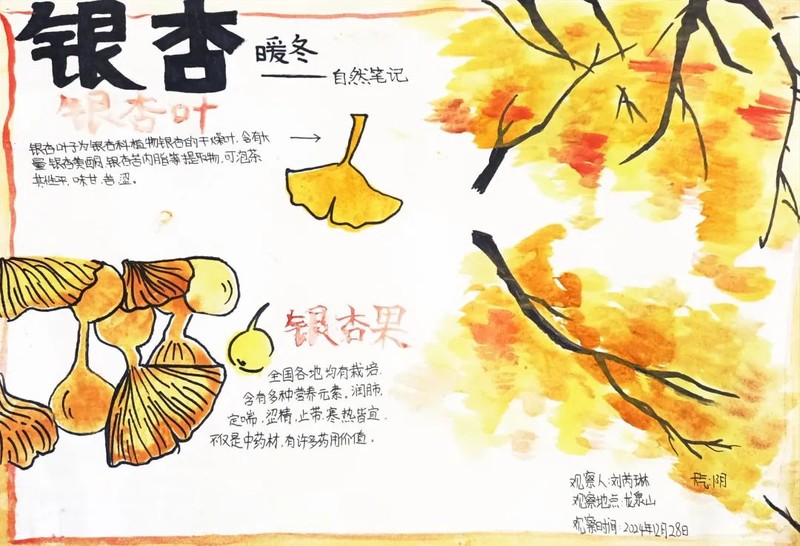 银杏
暖冬
——自然笔记
银杏叶
银杏叶子为银杏科植物银杏的干燥叶,含有大
量银杏类酮,银杏苦内脂等提取物,可泡茶
其性平,味甘,苦,涩。
银杏果
全国各地均有栽培,
含有多种营养元素。润肺,
定喘,涩精,止带,寒热皆宜,
不仅是中药材,有许多药用价值。
观察人:刘芮琳
天气:阴
观察地点:龙泉山
观察时间:2024年12月28日